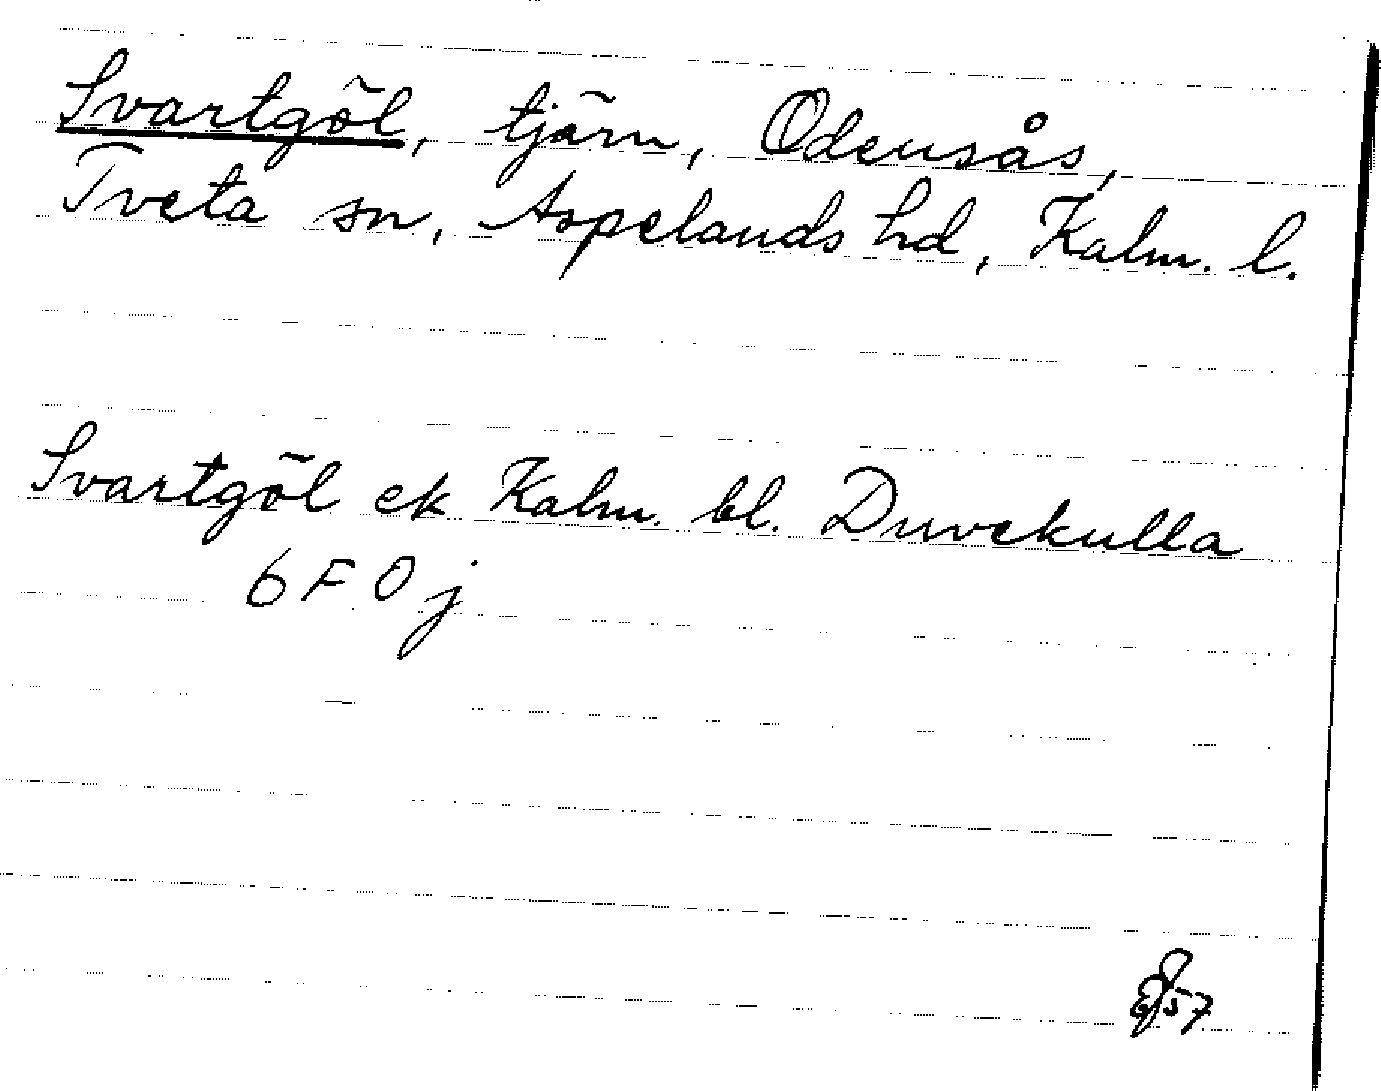 Svartgöl, tjärn, Odensås,
Tveta sn, Aspelands hd, Kalm. l.
Svartgöl ek Kalm. bl. Duvekulla
6 F 0 j
57